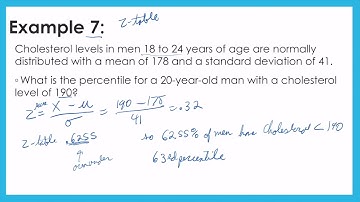 Example 7:
Z-table
Cholesterol levels in men 18 to 24 years of age are normally
distributed with a mean of 178 and a standard deviation of 41.
What is the percentile for a 20-year-old man with a cholesterol
level of 190?
Z = x - u / σ = 190 - 178 / 41 = .32
Z-table .6255 so 62.55% of men has cholesterol < 190
63rd percentile